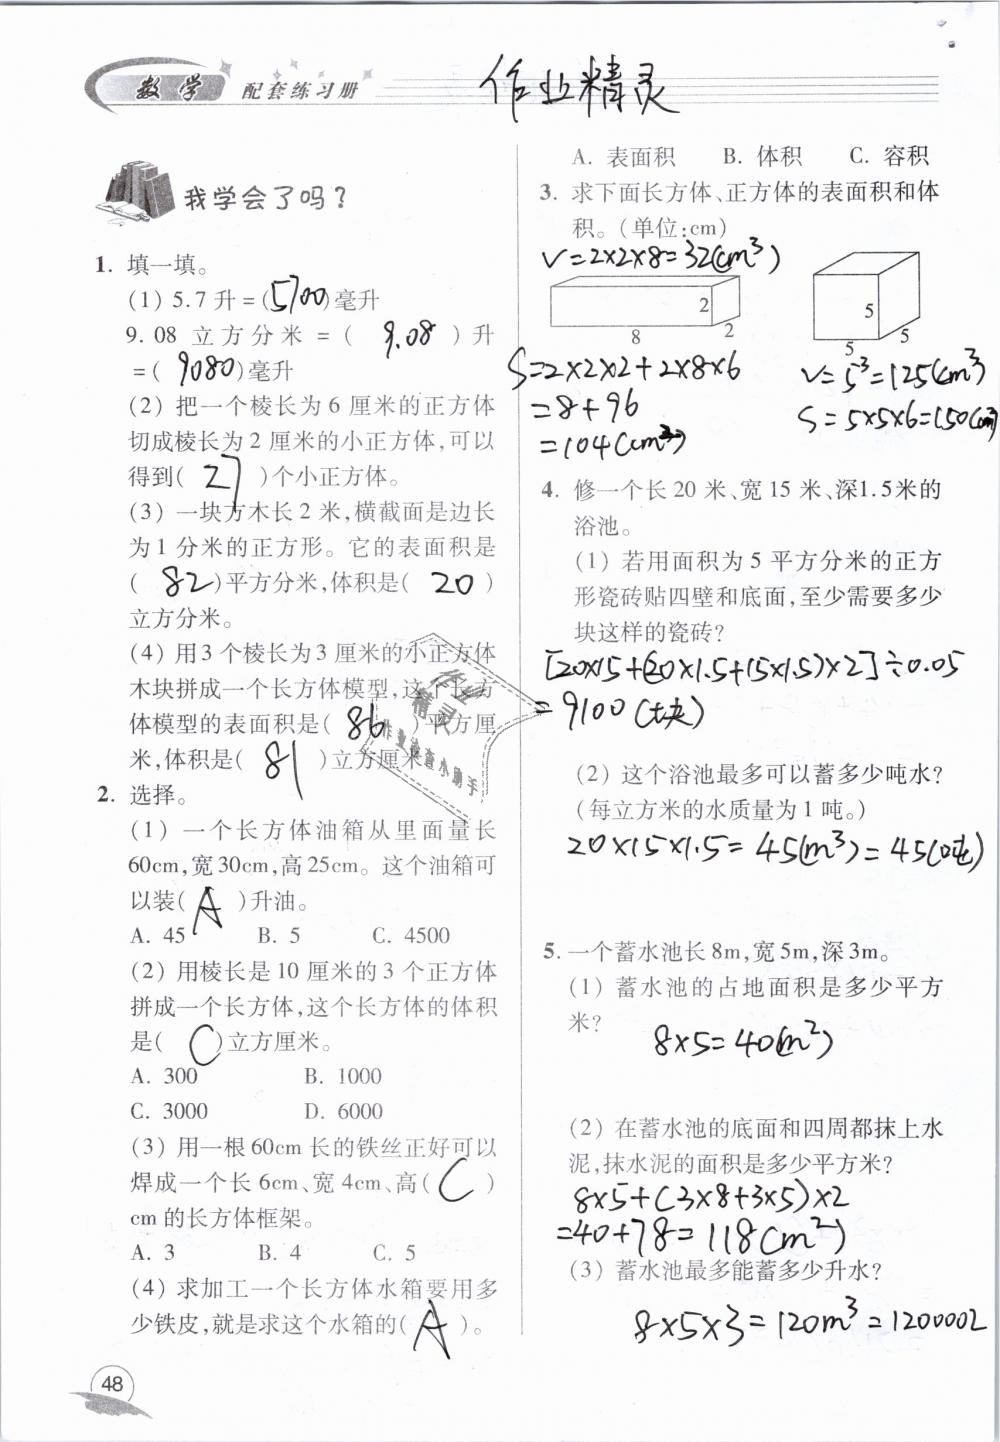 数学 配套练习册
作业精灵
我学会了吗？
1. 填一填。
(1) 5.7升=(5700)毫升
9.08立方分米=( 9.08 )升
=( 9080 )毫升
(2) 把一个棱长为6厘米的正方体
切成棱长为2厘米的小正方体,可以
得到( 27 )个小正方体。
(3) 一块方木长2米,横截面是边长
为1分米的正方形。它的表面积是
( 82 )平方分米,体积是( 20 )
立方分米。
(4) 用3个棱长为3厘米的小正方体
木块拼成一个长方体模型,这个长方
体模型的表面积是( 86 )平方厘
米,体积是( 81 )立方厘米。
2. 选择。
(1) 一个长方体油箱从里面量长
60cm,宽30cm,高25cm。这个油箱可
以装( A )升油。
A. 45 B. 5 C. 4500
(2) 用棱长是10厘米的3个正方体
拼成一个长方体,这个长方体的体积
是( C )立方厘米。
A. 300 B. 1000
C. 3000 D. 6000
(3) 用一根60cm长的铁丝正好可以
焊成一个长6cm、宽4cm、高( C )
cm的长方体框架。
A. 3 B. 4 C. 5
(4) 求加工一个长方体水箱要用多
少铁皮,就是求这个水箱的( A )。
48
A. 表面积 B. 体积 C. 容积
3. 求下面长方体、正方体的表面积和体
积。(单位:cm)
V=2×2×8=32(cm³)
2
8
2
5
5
5
S=2×2×2+2×8×6
=8+96
=104(cm²)
V=5³=125(cm³)
S=5×5×6=150(cm²)
4. 修一个长20米、宽15米、深1.5米的
浴池。
(1) 若用面积为5平方分米的正方
形瓷砖贴四壁和底面,至少需要多少
块这样的瓷砖?
[20×15+(20×1.5+15×1.5)×2]÷0.05
=9100(块)
(2) 这个浴池最多可以蓄多少吨水?
(每立方米的水质量为1吨。)
20×15×1.5=45(m³)=45(吨)
5. 一个蓄水池长8m,宽5m,深3m。
(1) 蓄水池的占地面积是多少平方
米?
8×5=40(m²)
(2) 在蓄水池的底面和四周都抹上水
泥,抹水泥的面积是多少平方米?
8×5+(3×8+3×5)×2
=40+78=118(m²)
(3) 蓄水池最多能蓄多少升水?
8×5×3=120m³=120000L
作业
精灵
作业检查小助手